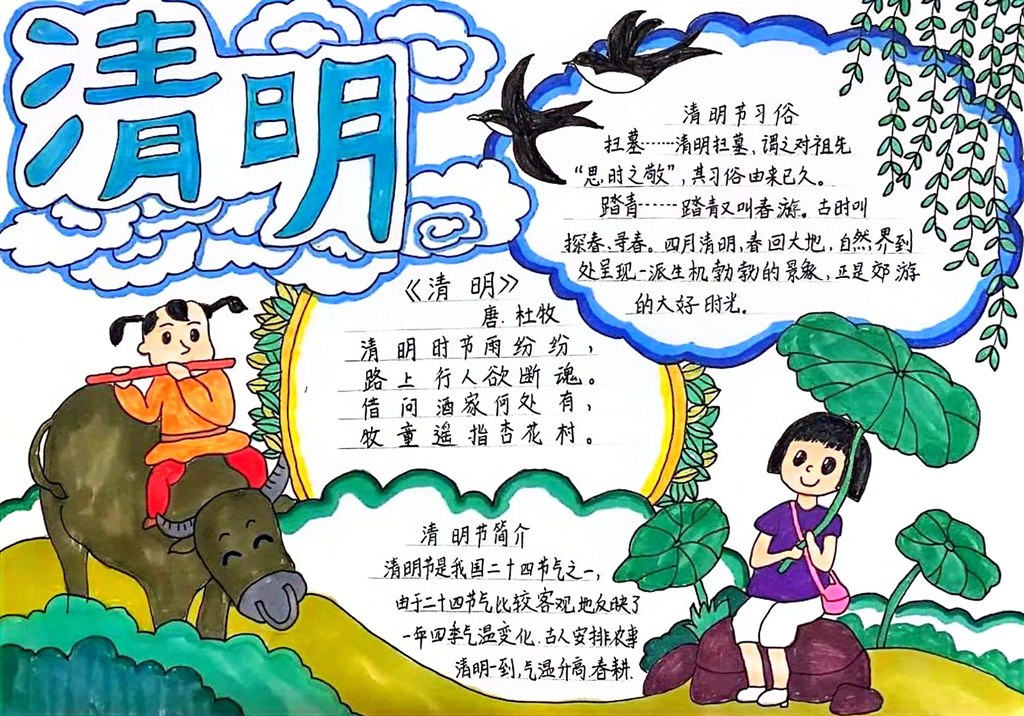 清明
清明节习俗
扫墓……清明扫墓,谓之对祖先
“思时之敬”,其习俗由来已久。
踏青……踏青又叫春游。古时叫
探春、寻春。四月清明,春回大地,自然界到
处呈现一派生机勃勃的景象,正是郊游
的大好时光。
《清明》
唐.杜牧
清明时节雨纷纷,
路上行人欲断魂。
借问酒家何处有,
牧童遥指杏花村。
清明节简介
清明节是我国二十四节气之一,
由于二十四节气比较客观地反映了
一年四季气温变化.古人安排农事
清明一到,气温升高.春耕.